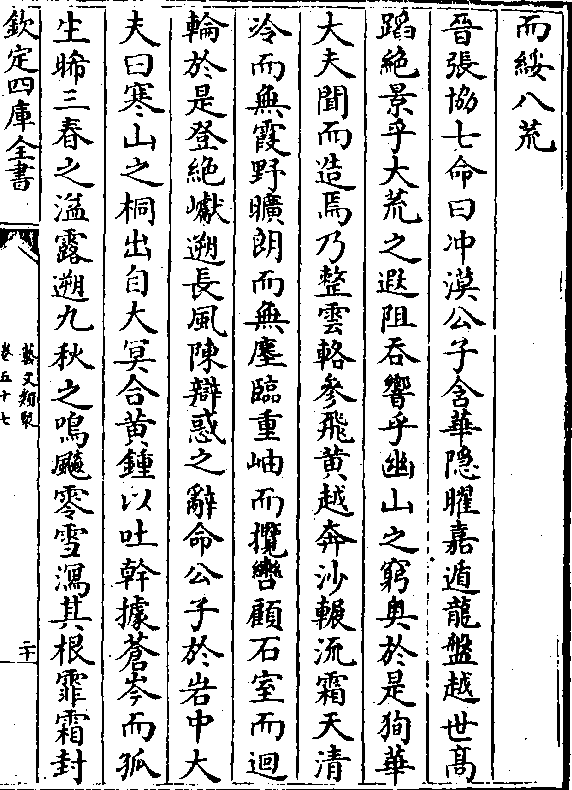 而綏八荒
晉張協七命曰冲漠公子含華隠曜嘉遁龍盤越世髙
蹈絶景乎大荒之遐阻吞響乎幽山之窮奥於是狥華
大夫聞而造焉乃整雲輅參飛黄越奔沙輾流霜天清
泠而無霞野曠朗而無塵臨重岫而攬轡顧石室而迴
輪於是登絶巘遡長風陳辯惑之辭命公子於岩中大
夫曰寒山之桐出自大冥合黄鍾以吐幹據蒼岑而孤
生晞三春之溢露遡九秋之鳴飈零雪瀉其根霏霜封
欽定四庫全書
藝文類聚
卷五十七
二十